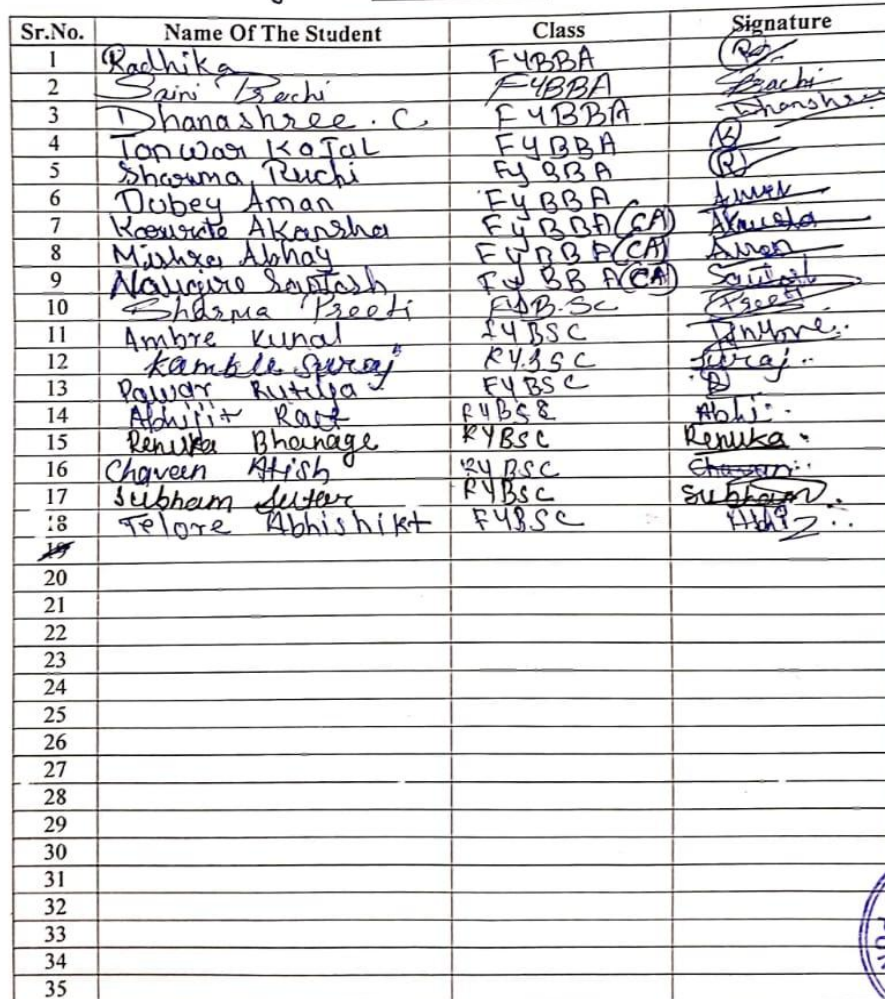 Sr.No. Name Of The Student Class Signature
1 Radhika FYBBA
2 Saini Prachi FYBBA Prachi
3 Dhanashree . C. FYBBA Dhanshree
4 Tanwar KaJaL FYBBA K
5 Sharma Ruchi Fy BBA R
6 Dubey Aman FyBBA Aman
7 AKansha FyBBA (CA)
8 Mishra Abhay FyBBA (CA)
9 Santosh Fy BBA (CA)
10 Sharma Preeti FYB.Sc Preeti
11 Ambre Kunal FYBSC
12 Kamble Suraj FY.BSC Suraj..
13 Pawar Rutuja FYBSC
14 Abhijit FYBSC Abhi..
15 Renuka Bhanage FYBSC Renuka .
16 Chaveen Atish FY BSC
17 Subham Sutar FYBSC Subham.
18 Telore Abhishikt FYBSC Abhi
19
20
21
22
23
24
25
26
27
28
29
30
31
32
33
34
35